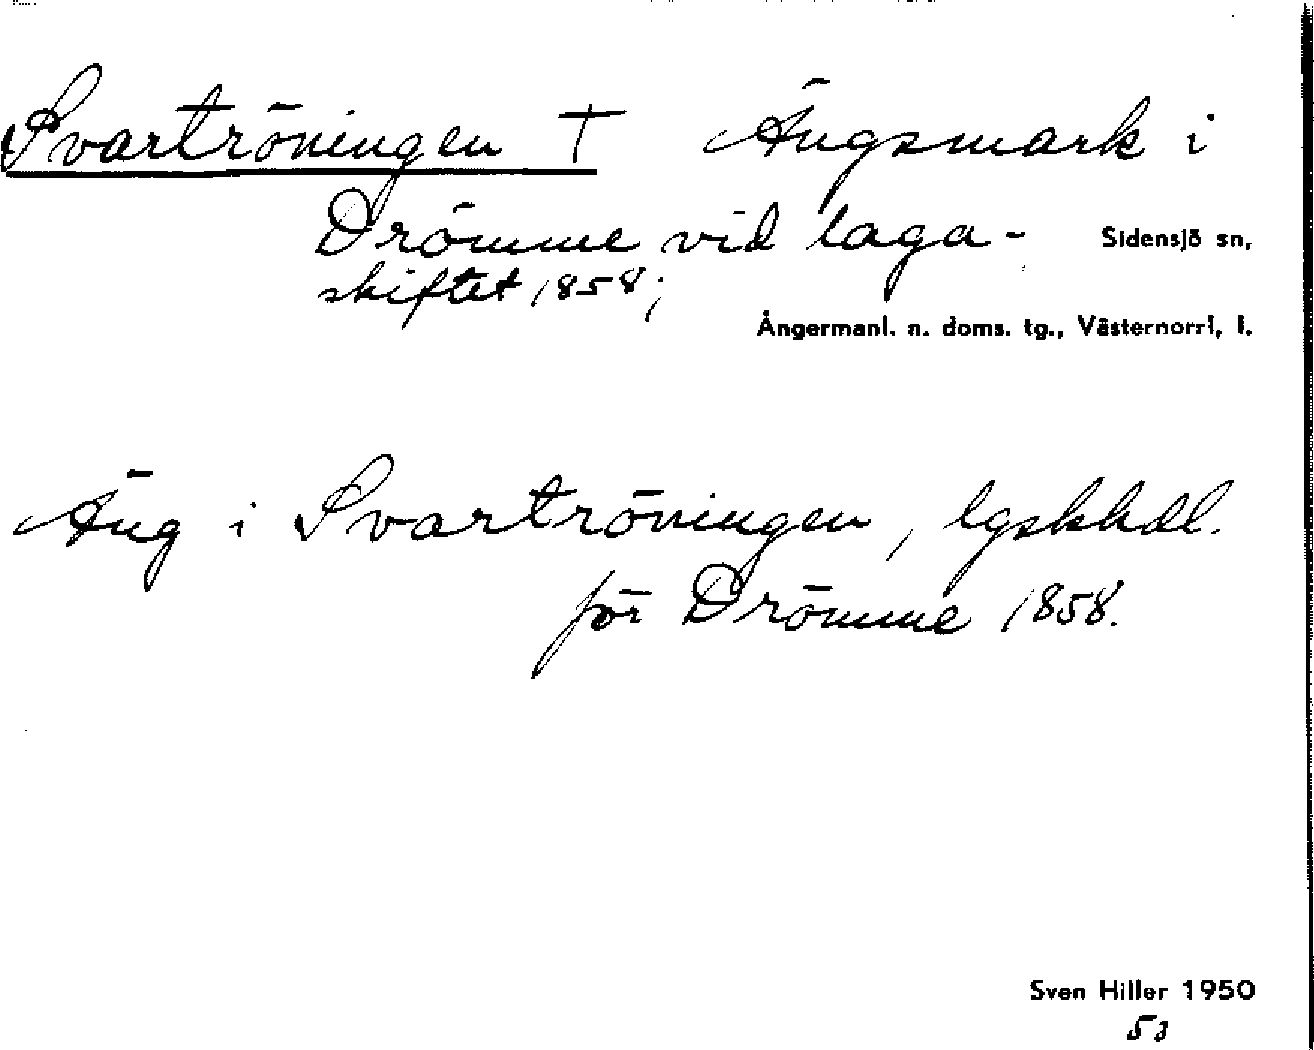 Svartröningen † Ängsmark i
Drömme vid laga-
skiftet 1858;
Sidensjö sn,
Ångermanl. n. doms. tg., Västernorrl, l.
Äng i Svartröningen, lgskhdl.
för Drömme 1858.
Sven Hiller 1950
53